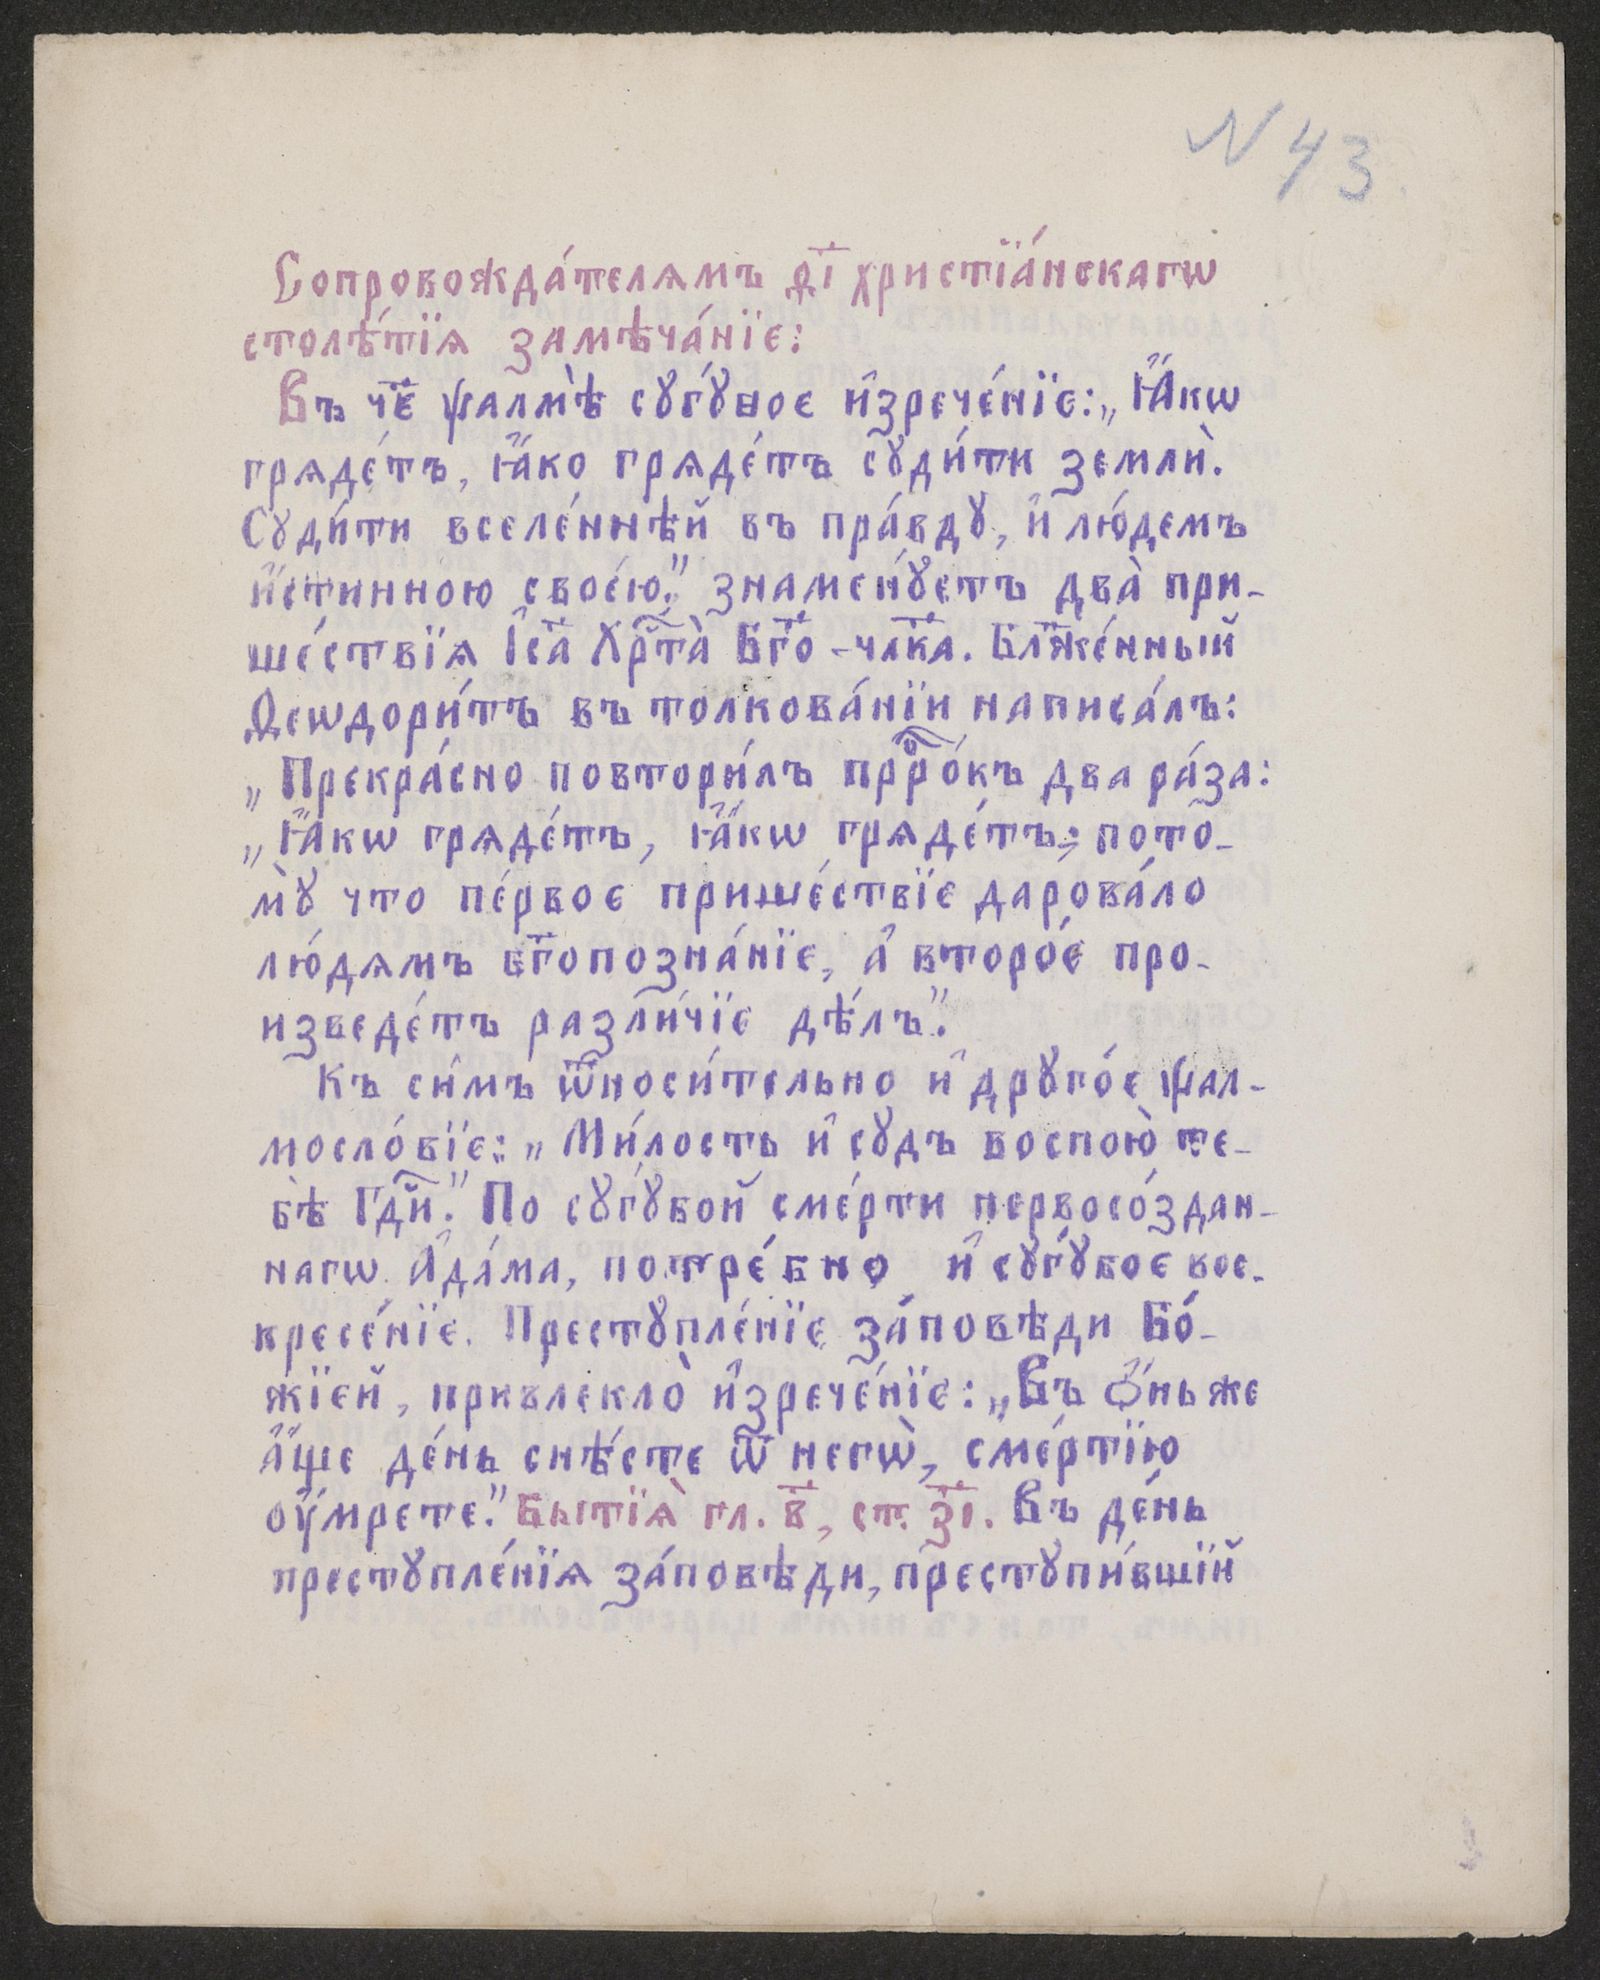 N 43.
Сопровожда́телямъ ѳ҃і христїа́нскагѡ
столѣ́тїѧ замѣча́нїе:
Въ ч҃е ѱалмѣ̀ сꙋгꙋ́бое и҆зрече́нїе: „Ꙗ҆́кѡ
гряде́тъ, ꙗ҆́ко гряде́тъ сꙋди́ти землѝ.
Сꙋди́ти вселе́ннѣй въ пра́вдꙋ, и҆ лю́демъ
и҆́стинною свое́ю.” знаменꙋ́етъ два̀ при-
ше́ствїѧ І҆с҃а Хрⷭ҇та̀ Бг҃о-чл҃ка. Бл҃же́нный
Ѳеѡдори́тъ въ толкова́нїи написа́лъ:
„Прекра́сно повтори́лъ прⷪ҇ро́къ два ра́за:
„Ꙗ҆́кѡ гряде́тъ, ꙗ҆́кѡ гряде́тъ; пото-
мꙋ̀ что пе́рвое прише́ствїе дарова́ло
лю́дямъ бг҃опозна́нїе, а҆ второ́е про-
изведе́тъ разли́чїе дѣ́лъ”.
Къ си́мъ ѿноси́тельно и҆ дрꙋго́е ѱал-
мосло́вїе: „Ми́лость и҆ сꙋдъ воспою̀ те-
бѣ̀ Гдⷭ҇и.” По сꙋгꙋ́бой сме́рти первосо́здан-
нагѡ А҆да́ма, потре́бно и҆ сꙋгꙋ́бое вос-
кресе́нїе. Престꙋпле́нїе за́повѣди Бо́-
жїей, привлекло̀ и҆зрече́нїе: „Въ ѻ҆́ньже
а҆́ще де́нь снѣ́сте ѿ негѡ̀, сме́ртїю
оу҆́мрете.” Бытїѧ̀ гл. в҃, ст. з҃і. Въ де́нь
престꙋпле́нїѧ за́повѣди, престꙋпи́вшїй